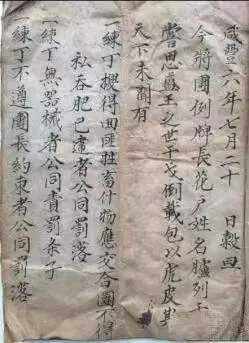 咸豐六年七月二十 日穀旦
今將團例牌長花户姓名臚列于
嘗思蓋王之世干戈倒載包以虎皮斯
天下未聞有
一練丁搜得回匪牲畜什物應交合團不得
私吞肥己違者公同罰落
一練丁無器械者公同責罰条子
一練丁不遵團長約束者公同罰落